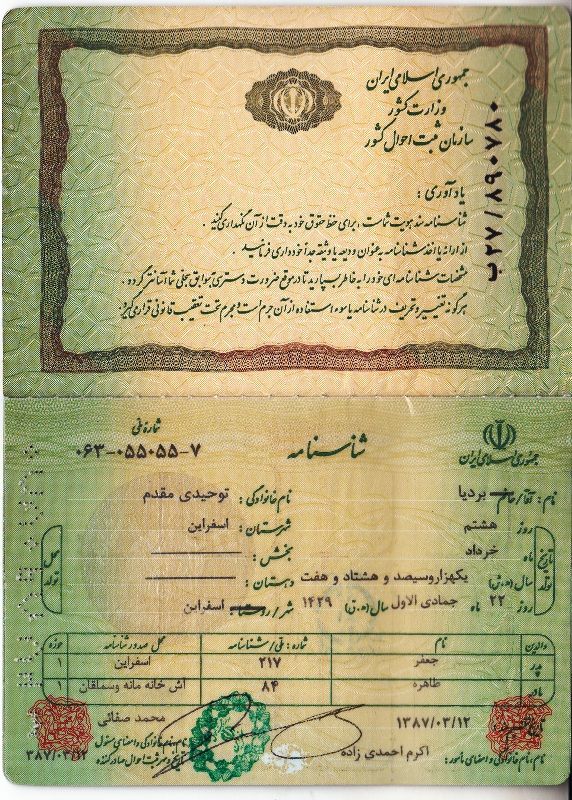 جمهوری اسلامی ایران
وزارت کشور
سازمان ثبت احوال کشور
ب۲۷/۸۹۰۷۸۰
یادآوری :
شناسنامه سند هویت شماست ، برای حفظ حقوق خود به دقت از آن نگهداری کنید .
از ارائه یا اخذ شناسنامه به عنوان ودیعه یا وثیقه جداً خودداری فرمائید .
مشخصات شناسنامه ای خود را به خاطر بسپارید تا در موقع ضرورت دسترسی به سوابق سجلی شما آسانتر گردد .
هرگونه تغییر و تحریف در شناسنامه یا سوء استفاده از آن جرم است و مجرم تحت تعقیب قانونی قرار می گیرد
جمهوری اسلامی ایران
شناسنامه
شماره ملی
۰۶۳-۰۵۵۰۵۵-۷
نام : آقا / خانم بردیا
نام خانوادگی : توحیدی مقدم
تاریخ تولد
روز هشتم
ماه خرداد
سال (ه.ش) یکهزاروسیصد و هشتاد و هفت
روز ۲۲ ماه جمادی الاول سال (ه.ق) ۱۴۲۹
محل تولد
شهرستان : اسفراین
بخش :
دهستان :
شهر / روستا : اسفراین
والدین نام شماره : ملی / شناسنامه محل صدور شناسنامه حوزه
پدر جعفر ۲۱۷ اسفراین ۱
مادر طاهره ۸۴ آش خانه مانه وسملقان ۱
۱۳۸۷/۰۳/۱۲
محمد صفائی
اکرم احمدی زاده
نام ، نام خانوادگی و امضای مأمور :
نام ، نام خانوادگی و امضای مسئول
۱۳۸۷/۰۳/۱۲